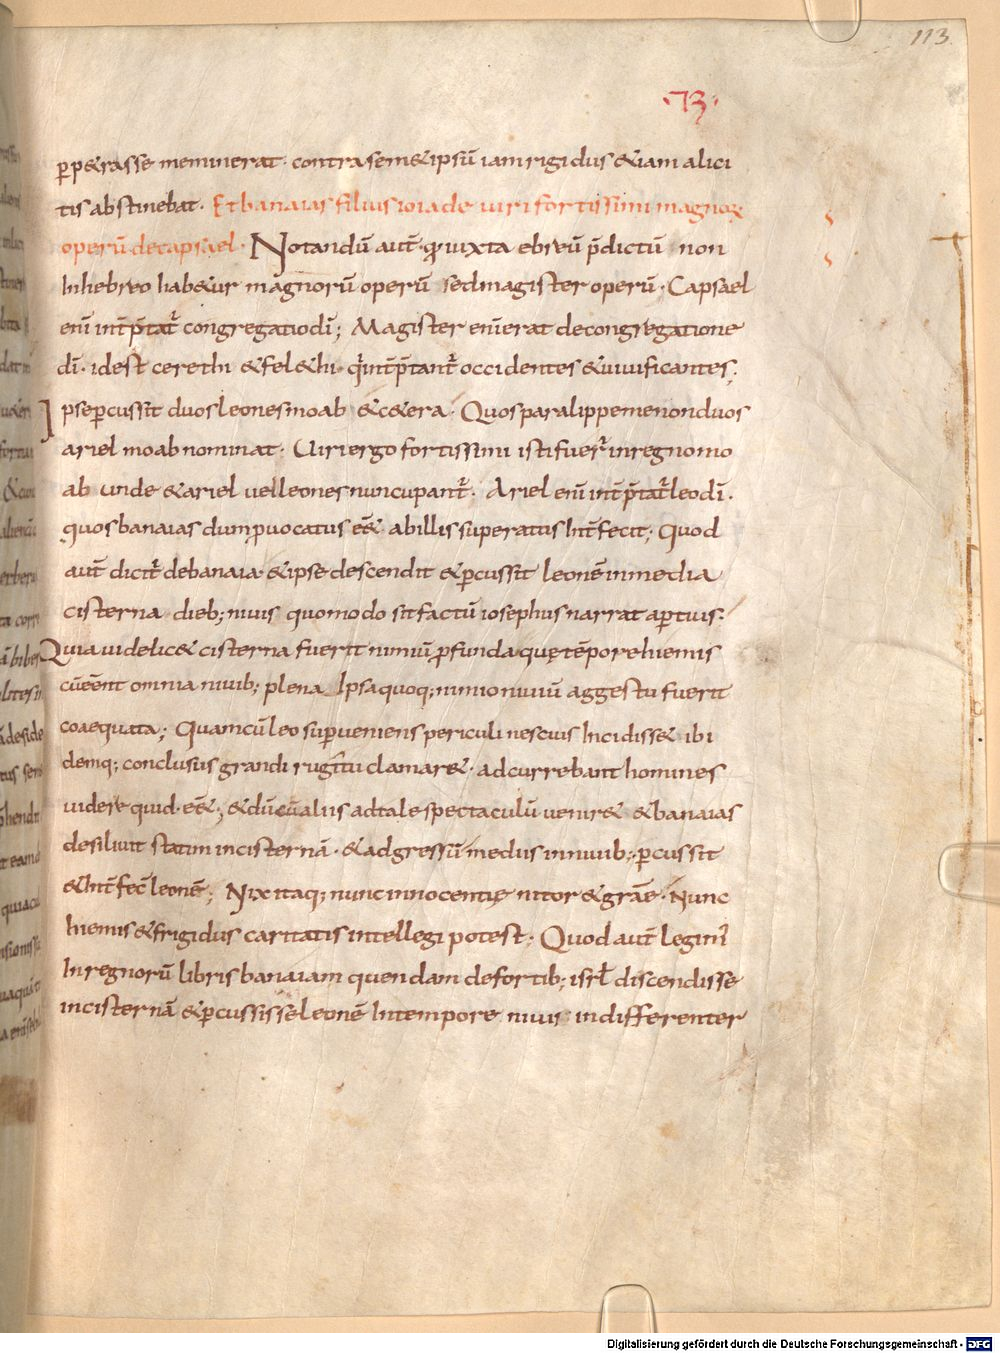 113
·73·
ꝑp&rasse meminerat· contra sem&ipsū iam rigidus &iam a lici
tis abstinebat· Et banaias filius ioiade uiri fortissimi magnoꝝ
operū decapsael· Notandū aut̄ qđ iuxta ebreū p̄dictū non
In hebreo hab&ur magnorū operū sed magister operū· Capsael
eni int̄p̄tat̄ congregatio dī; Magister eni erat de congregatione
dī· idest cerethi &fel&hi qͥ int̄p̄tant̄ occidentes &uiuificantes;
Ipse ꝑcussit duos leones moab &c&era· Quos paralippemenon duos
ariel moab nominat· Uiri ergo fortissimi isti fuer̄ in regno mo
ab unde &ariel uel leones nuncupant̄· Ariel eni int̄p̄tat̄ leo dī·
quos banaias dum ꝓuocatus ēē& ab illis superatus Int̄fecit; Quod
aut̄ dicit̄ de banaia· &ipse descendit &ꝑcussit leonē in media
cisterna dieb; niuis quomodo sit factū iosephus narrat aꝑtius·
Quia uidelic& cisterna fuerit nimiū ꝓfunda quę tēpore hiemis
cū ēēnt omnia niuib; plena Ipsa quoq; nimio niuiū aggestu fuerit
coaequata; Quam cū leo suꝑueniens periculi nescius Incidiss& ibi
demq; conclusus grandi rugitu clamar&· adcurrebant homines
uidere quid ēē&; &dū cū aliis ad tale spectaculū uenir& &banaias
desiliuit statim in cisternā· &adgressū medus in niuib; ꝑcussit
&Int̄fec̄ leonē; Nix itaq; nunc innocentię nitor &gratię· Nunc
hiemis &frigidus caritatis intellegi potest; Quod aut̄ legim'
In regnorū libris banaiam quendam de fortib; isrł discendisse
in cisternā &ꝑcussisse leonē In tempore niuis indifferenter
Digitalisierung gefördert durch die Deutsche Forschungsgemeinschaft - DFG